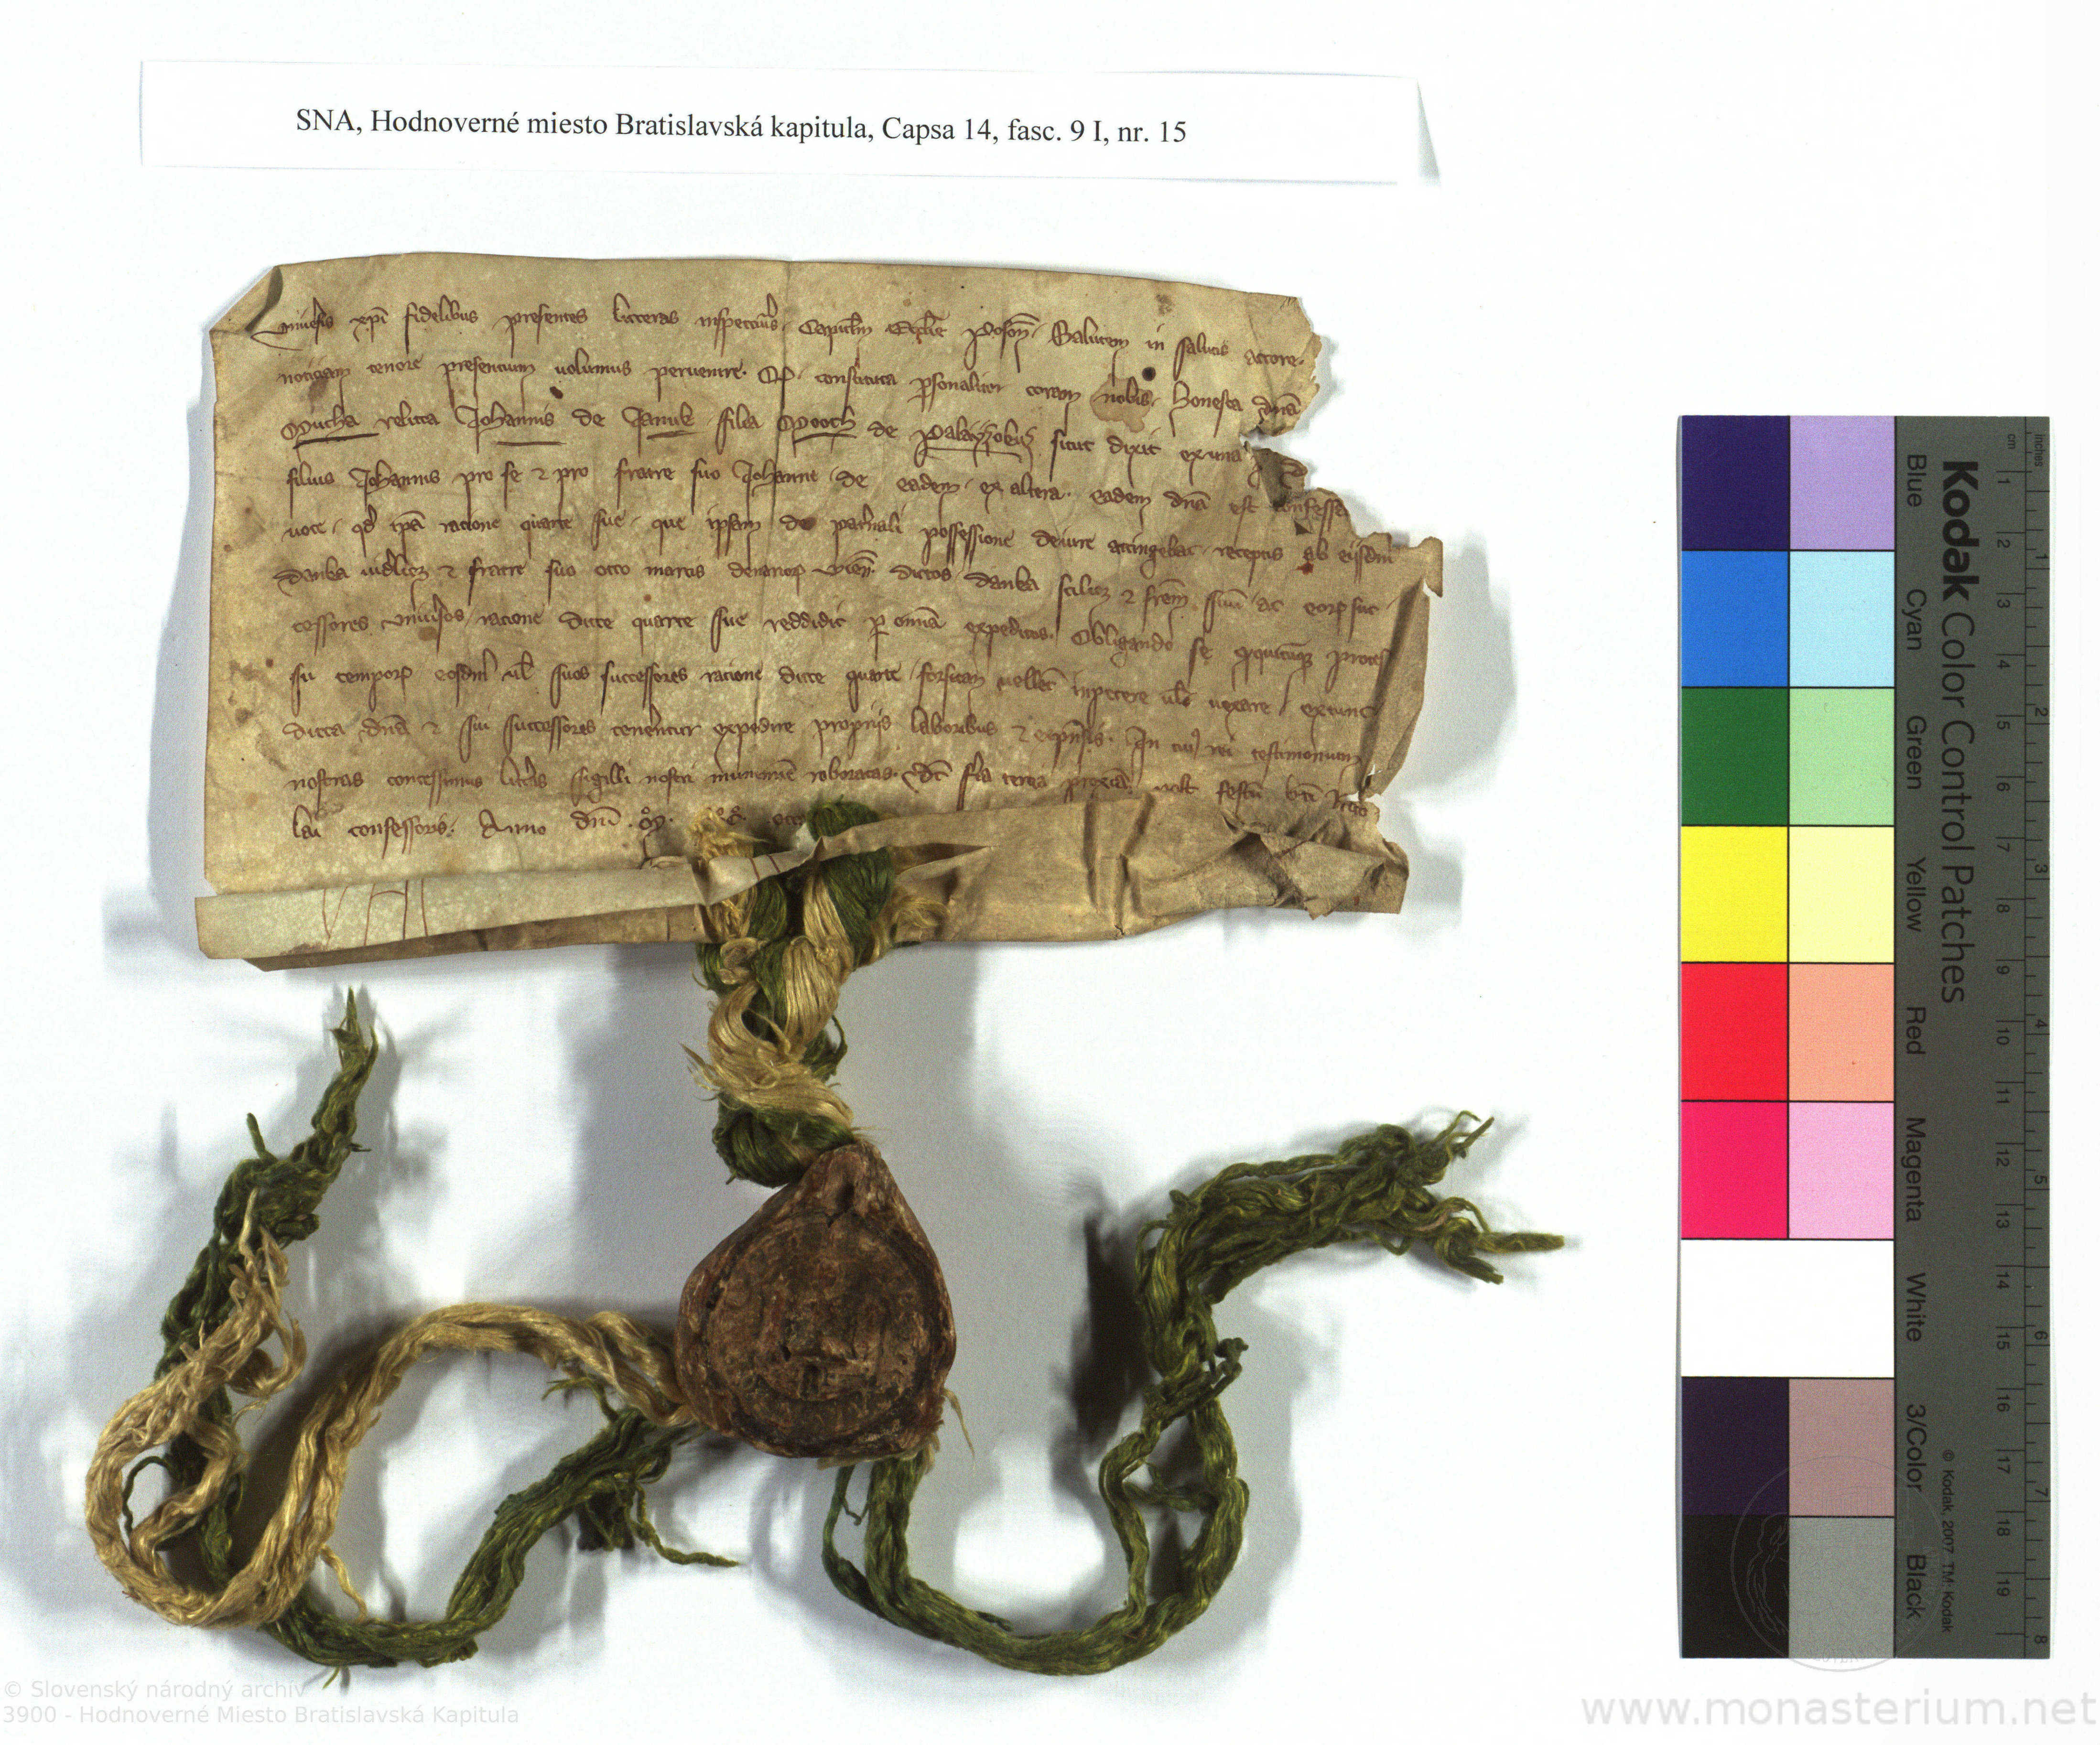 SNA, Hodnoverné miesto Bratislavská kapitula, Capsa 14, fasc. 9 I, nr. 15
vniũsis xpi fidelibus presentes litteras inspecturis Capitlm Ecclie Poson Salutem in salutis actore
noticiam tenore presentium uolumus peruenire Qd constituta psonaliter coram nobis honesta dna
relicta Johannis de filia de sicut dixit ex una
filius Johannis pro se et pro fratre suo Johanne de eadem ex altera eadem dna est confessa
uoce qd ipa racione quarte sue que ipsam de possessione deiure attingebat receptis ab eisdem
Danka et fratre suo octo marcis denarior dictos Danka scilicet et frem suum ac eorp suc
cessores vniuersos racione dicte quarte sue reddidit p omnia expeditos Obligando se
temporp eosdem uel suos successores racione dicte quarte forsitan uellet inpetere uel uexare extunc
dicta dna et sui successores tenentur expedire proprijs laboribus et expensis In cui rei testimonium
nostras concessimus litteras sigilli nostri munimine roboratas feria tercia proxima festum bti Nico
lai confessoris Anno dni
Kodak Color Control Patches
Blue
Cyan
Green
Yellow
Red
Magenta
White
3/Color
Black
© Kodak, 2007 TM: Kodak
cm 1 2 3 4 5 6 7 8 9 10 11 12 13 14 15 16 17 18 19
inches 1 2 3 4 5 6 7 8
© Slovenský národný archív
3900 - Hodnoverné Miesto Bratislavská Kapitula
www.monasterium.net